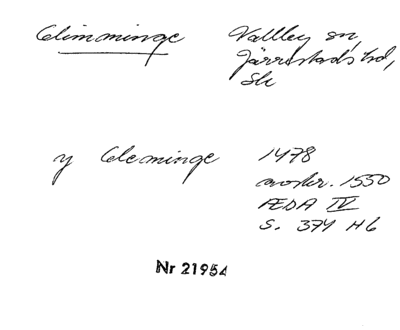 Glimminge Vallby sn,
Järrestads hd,
Sk
y Gleminge 1478
avskr. 1550
ÆDA IV
S. 374 H6
Nr 21954